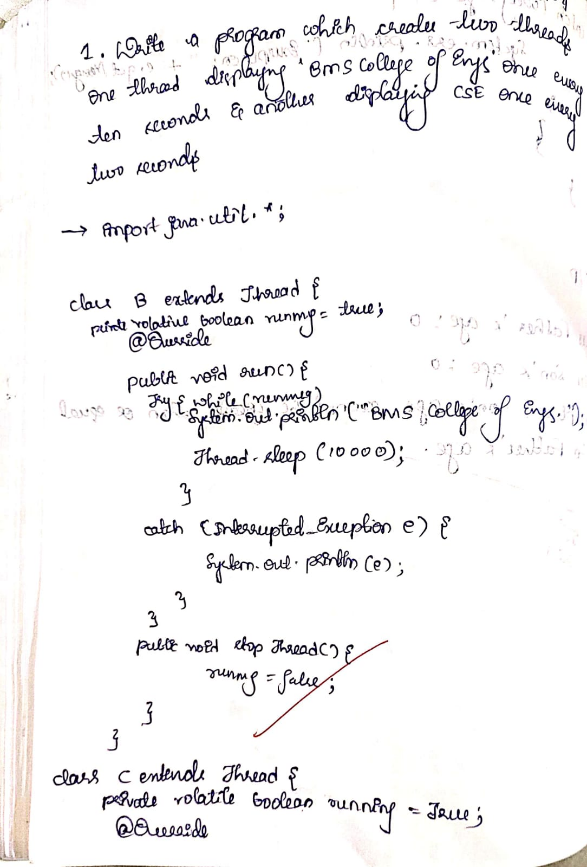 1. Write a program which creates two threads
one thread displaying "BMS College of Engg once every
ten seconds & another displaying CSE once every
two seconds
→ Import java.util.*;
class B extends Thread {
private volatile boolean running = true;
@Override
public void run() {
try { while (running)
System.out.println ("BMS College of Engg.");
Thread.sleep (10000);
}
catch (Interrupted_Exception e) {
System.out.println (e);
}
}
public void stop Thread() {
running = false;
}
}
class C extends Thread {
private volatile boolean running = True;
@Override